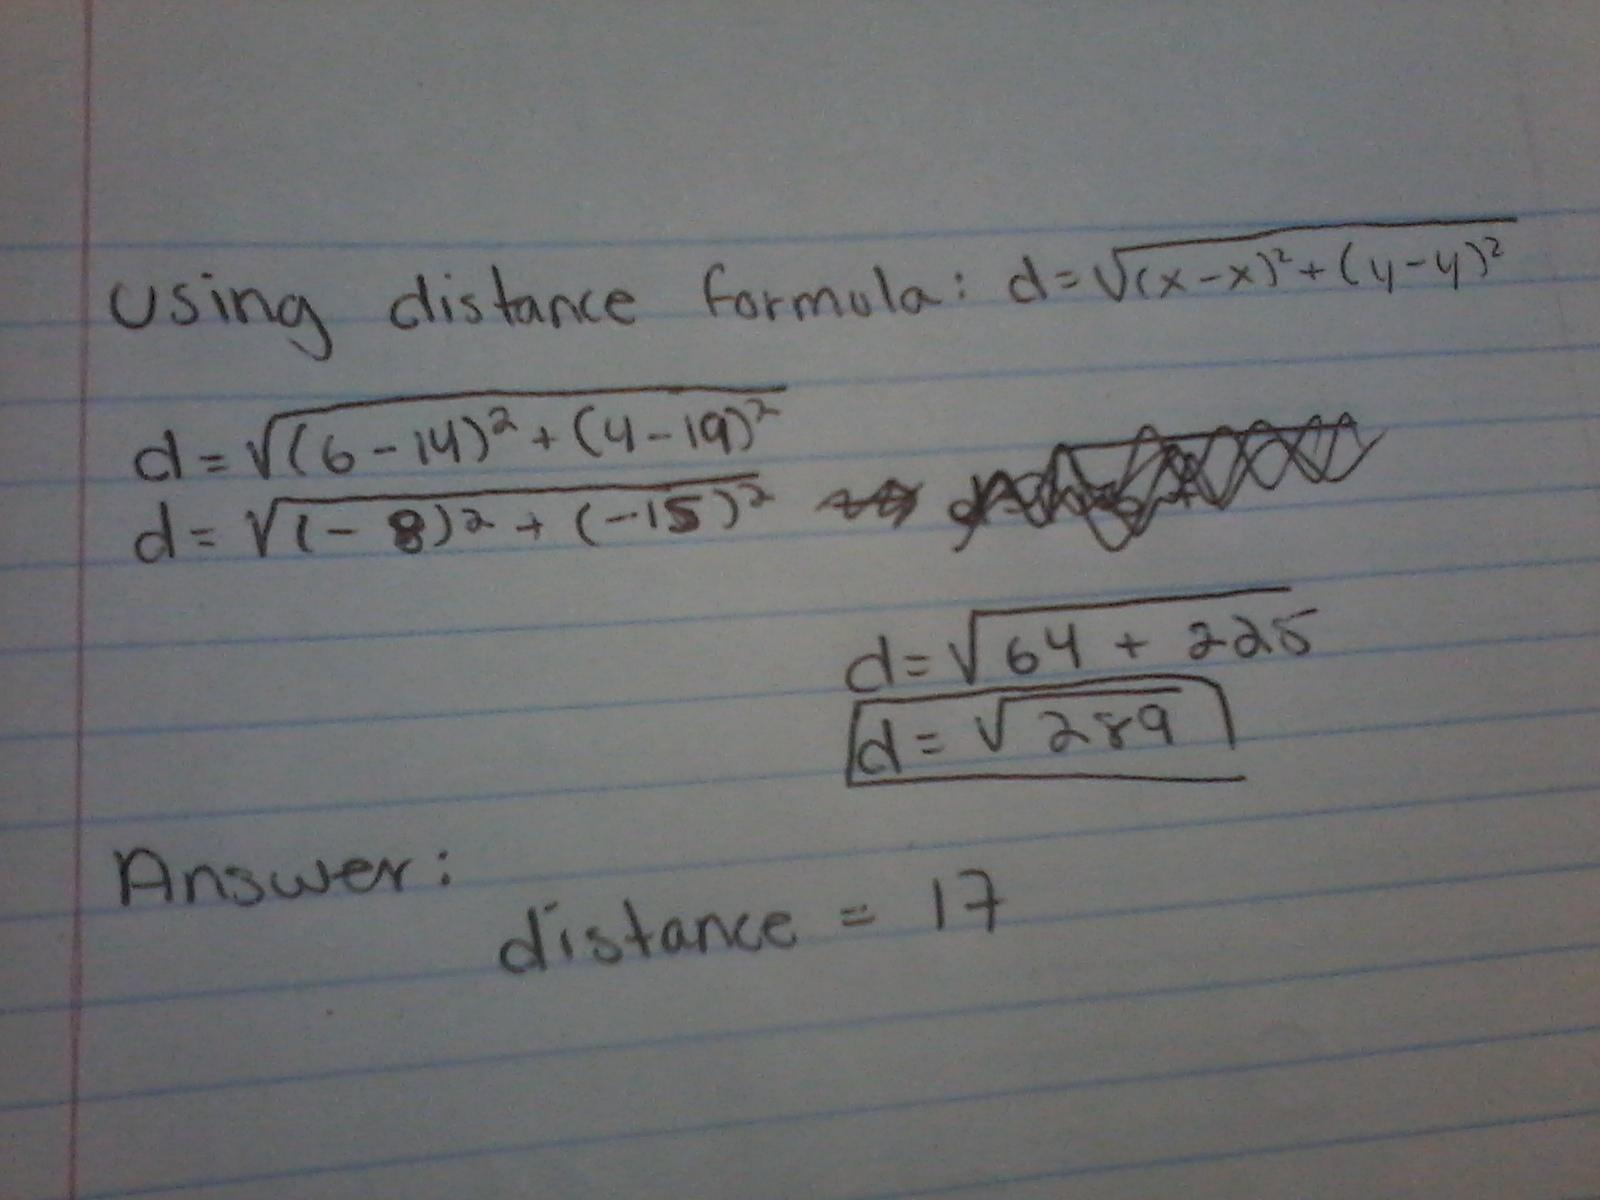 Using distance formula: d=√(x-x)²+(y-y)²
d=√(6-14)²+(4-19)²
d=√(-8)²+(-15)²
d=√64+225
d=√289
Answer:
distance = 17